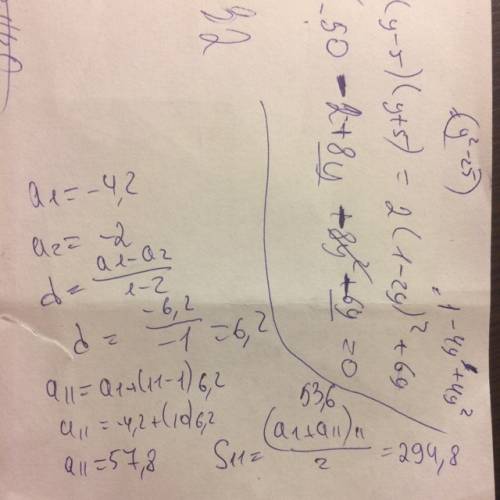 (y-5)(y+5) = 2(1-2y)² + 6y
(y²-25)
= 1-4y+4y²
-50 - 2+8y + 8y² + 6y = 0
32
a1 = -4,2
a2 = -2
d = \frac{a1-a2}{1-2}
d = \frac{-6,2}{-1} = 6,2
a11 = a1+(11-1)6,2
a11 = -4,2+(10)6,2
a11 = 57,8
53,6
S11 = \frac{(a1+a11)11}{2} = 294,8